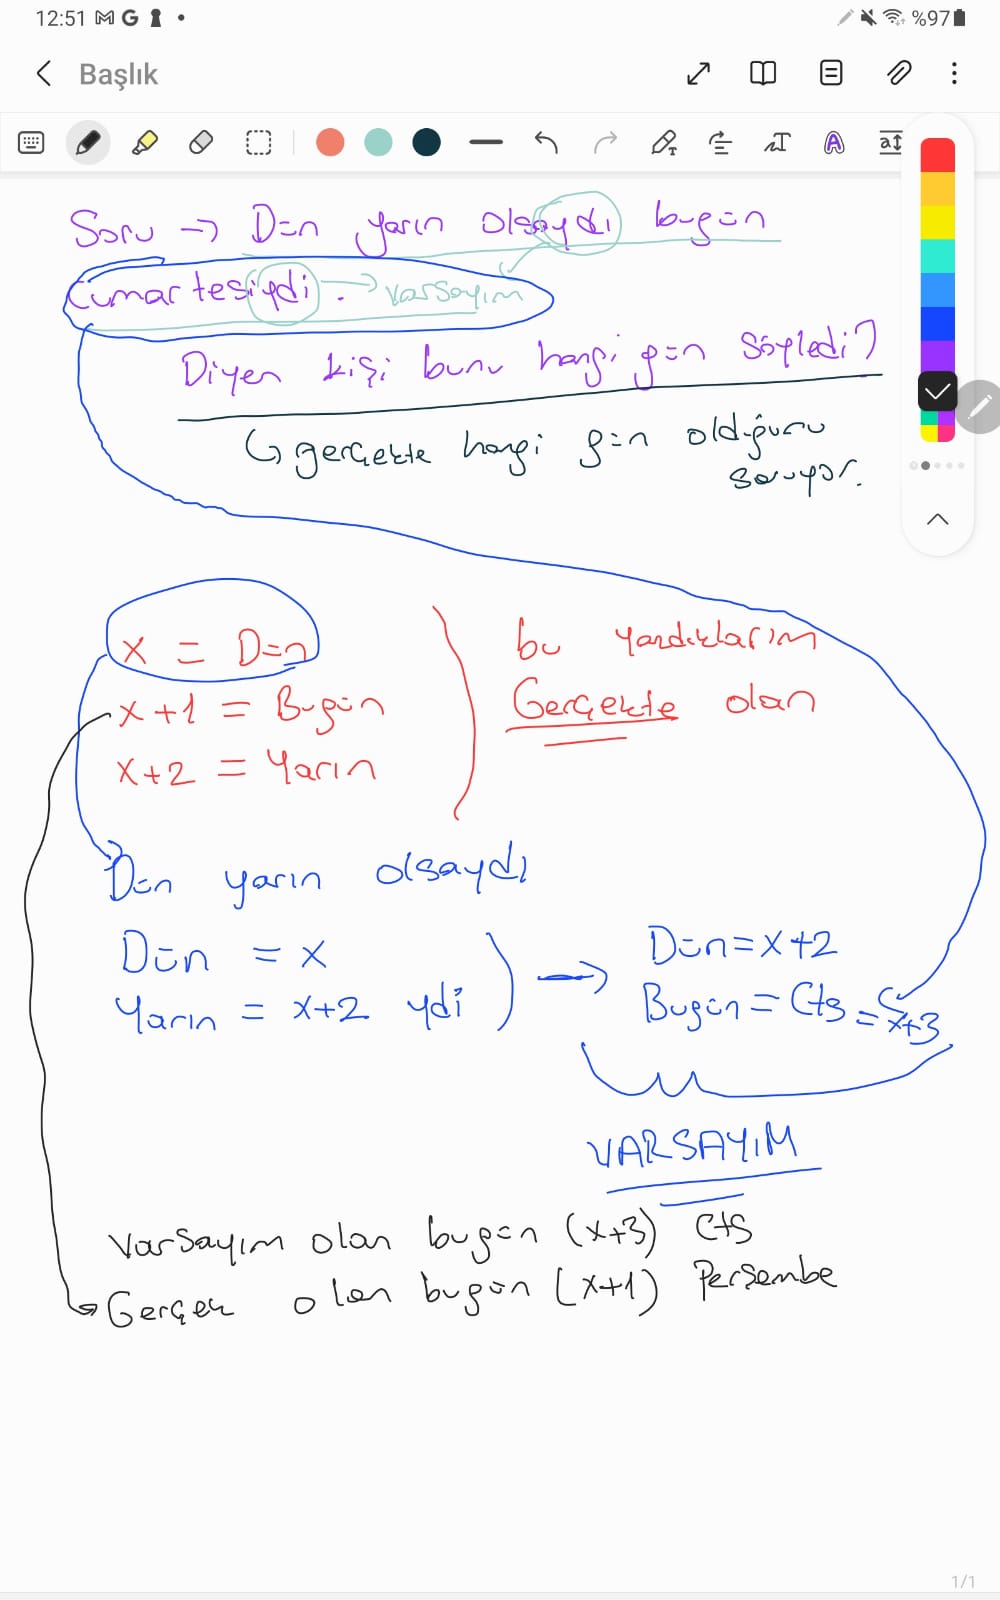 12:51 M G %97
Başlık
Soru → Dün yarın olsaydı bugün
Cumartesiydi. → varsayım
Diyen kişi bunu hangi gün söyledi?
↳ gerçekte hangi gün olduğunu
soruyor.
x = Dün
x+1 = Bugün
x+2 = Yarın
bu yazdıklarım
Gerçekte olan
Dün yarın olsaydı
Dün = x
Yarın = x+2 ydi
→
Dün=x+2
Bugün = Cts = x+3
VARSAYIM
Varsayım olan bugün (x+3) Cts
Gerçek olan bugün (x+1) Perşembe
1/1